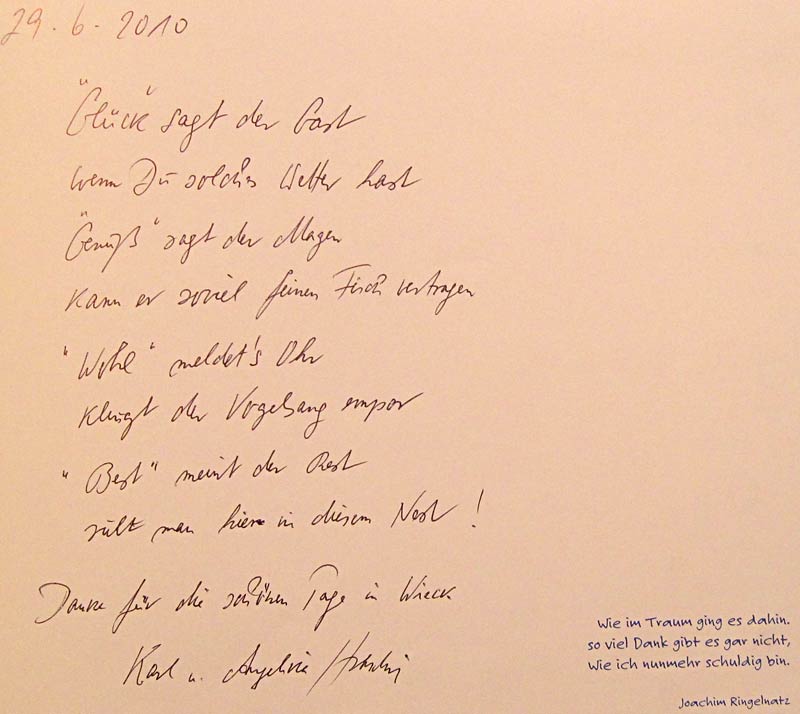 29.6.2010
"Glück" sagt der Gast
wenn Du solches Wetter hast
"Genuß" sagt der Magen
kann er soviel feinen Fisch vertragen
"Wohl" meldet's Ohr
klingt der Vogelsang empor
"Best" meint der Rest
ruht man hier in diesem Nest!
Danke für die schönen Tage in Wieck
Karl u. Angelika
Wie im Traum ging es dahin.
so viel Dank gibt es gar nicht,
Wie ich nunmehr schuldig bin.
Joachim Ringelnatz